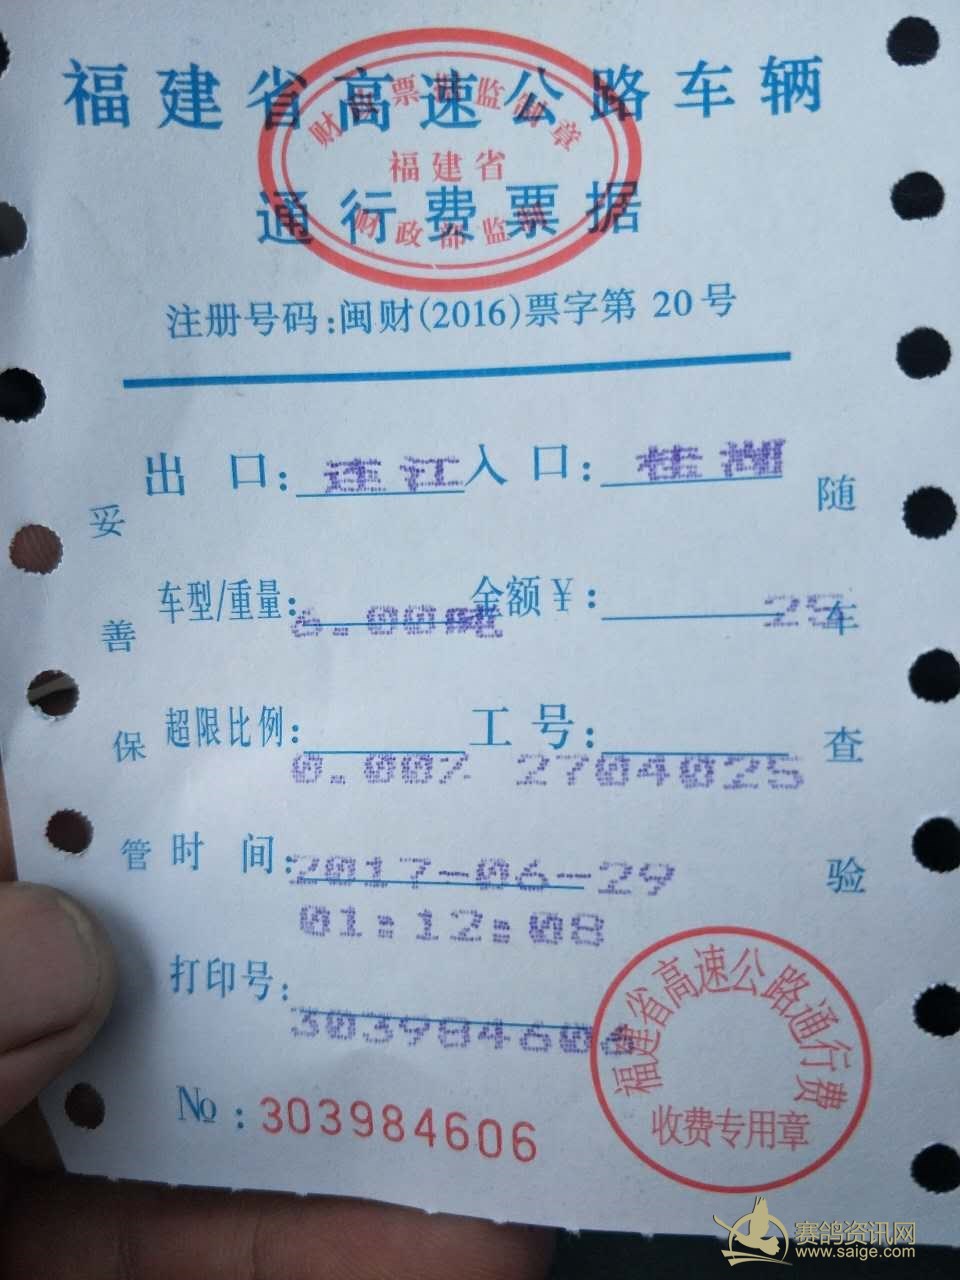 福建省高速公路车辆
通行费票据
财政票据监制章
福建省
财政部监制
注册号码:闽财(2016)票字第 20号
出 口: 连江 入 口: 桂湖
车型/重量: 6.00吨 金额¥: 25
超限比例: 0.00% 工 号: 2704025
时 间: 2017-06-29
01:12:08
打印号: 303984606
№: 303984606
妥善保管
随车查验
福建省高速公路通行费
收费专用章
赛鸽资讯网
www.saige.com